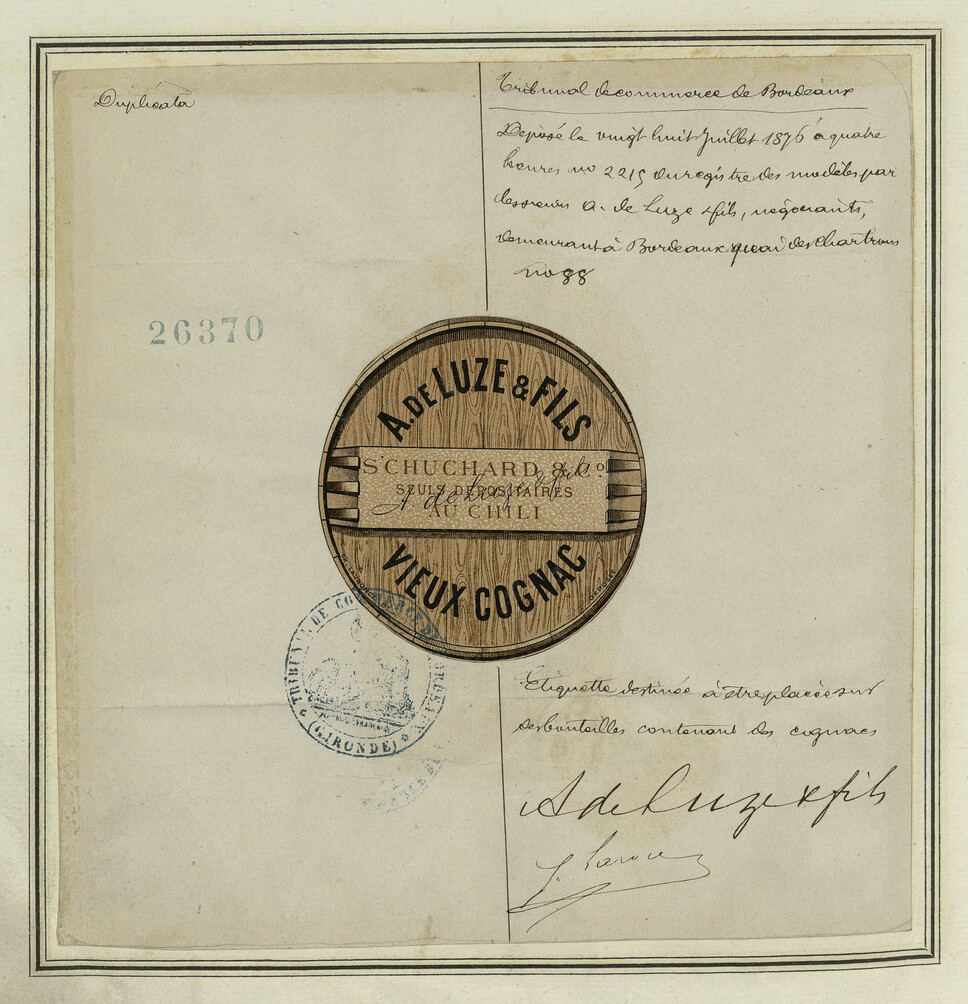 Duplicata
Tribunal de commerce de Bordeaux
Déposé le vingt huit Juillet 1876 à quatre
heures no 2215 du registre des modèles par
les sieurs A. de Luze & fils, négociants,
demeurant à Bordeaux quai des Chartrons
no 88
26370
A. DE LUZE & FILS
SCHUCHARD & Co.
SEULS DÉPOSITAIRES
AU CHILI
A de Luze & fils
VIEUX COGNAC
TRIBUNAL DE COMMERCE DE BORDEAUX
(GIRONDE)
Etiquette destinée à être placée sur
des bouteilles contenant des cognacs
A de Luze & fils